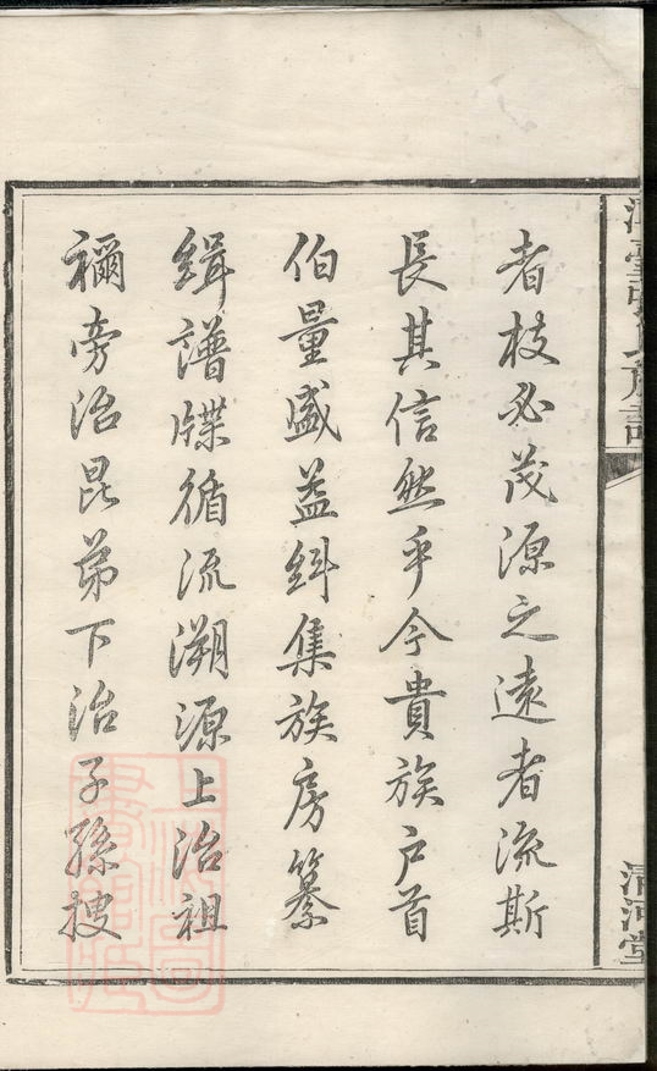 者枝必茂源之遠者流斯
長其信然乎今貴族户首
伯量盛益糾集族房纂
緝譜牒循流溯源上治祖
禰旁治昆弟下治子孫搜
氏族譜
清河堂
上海圖書館藏